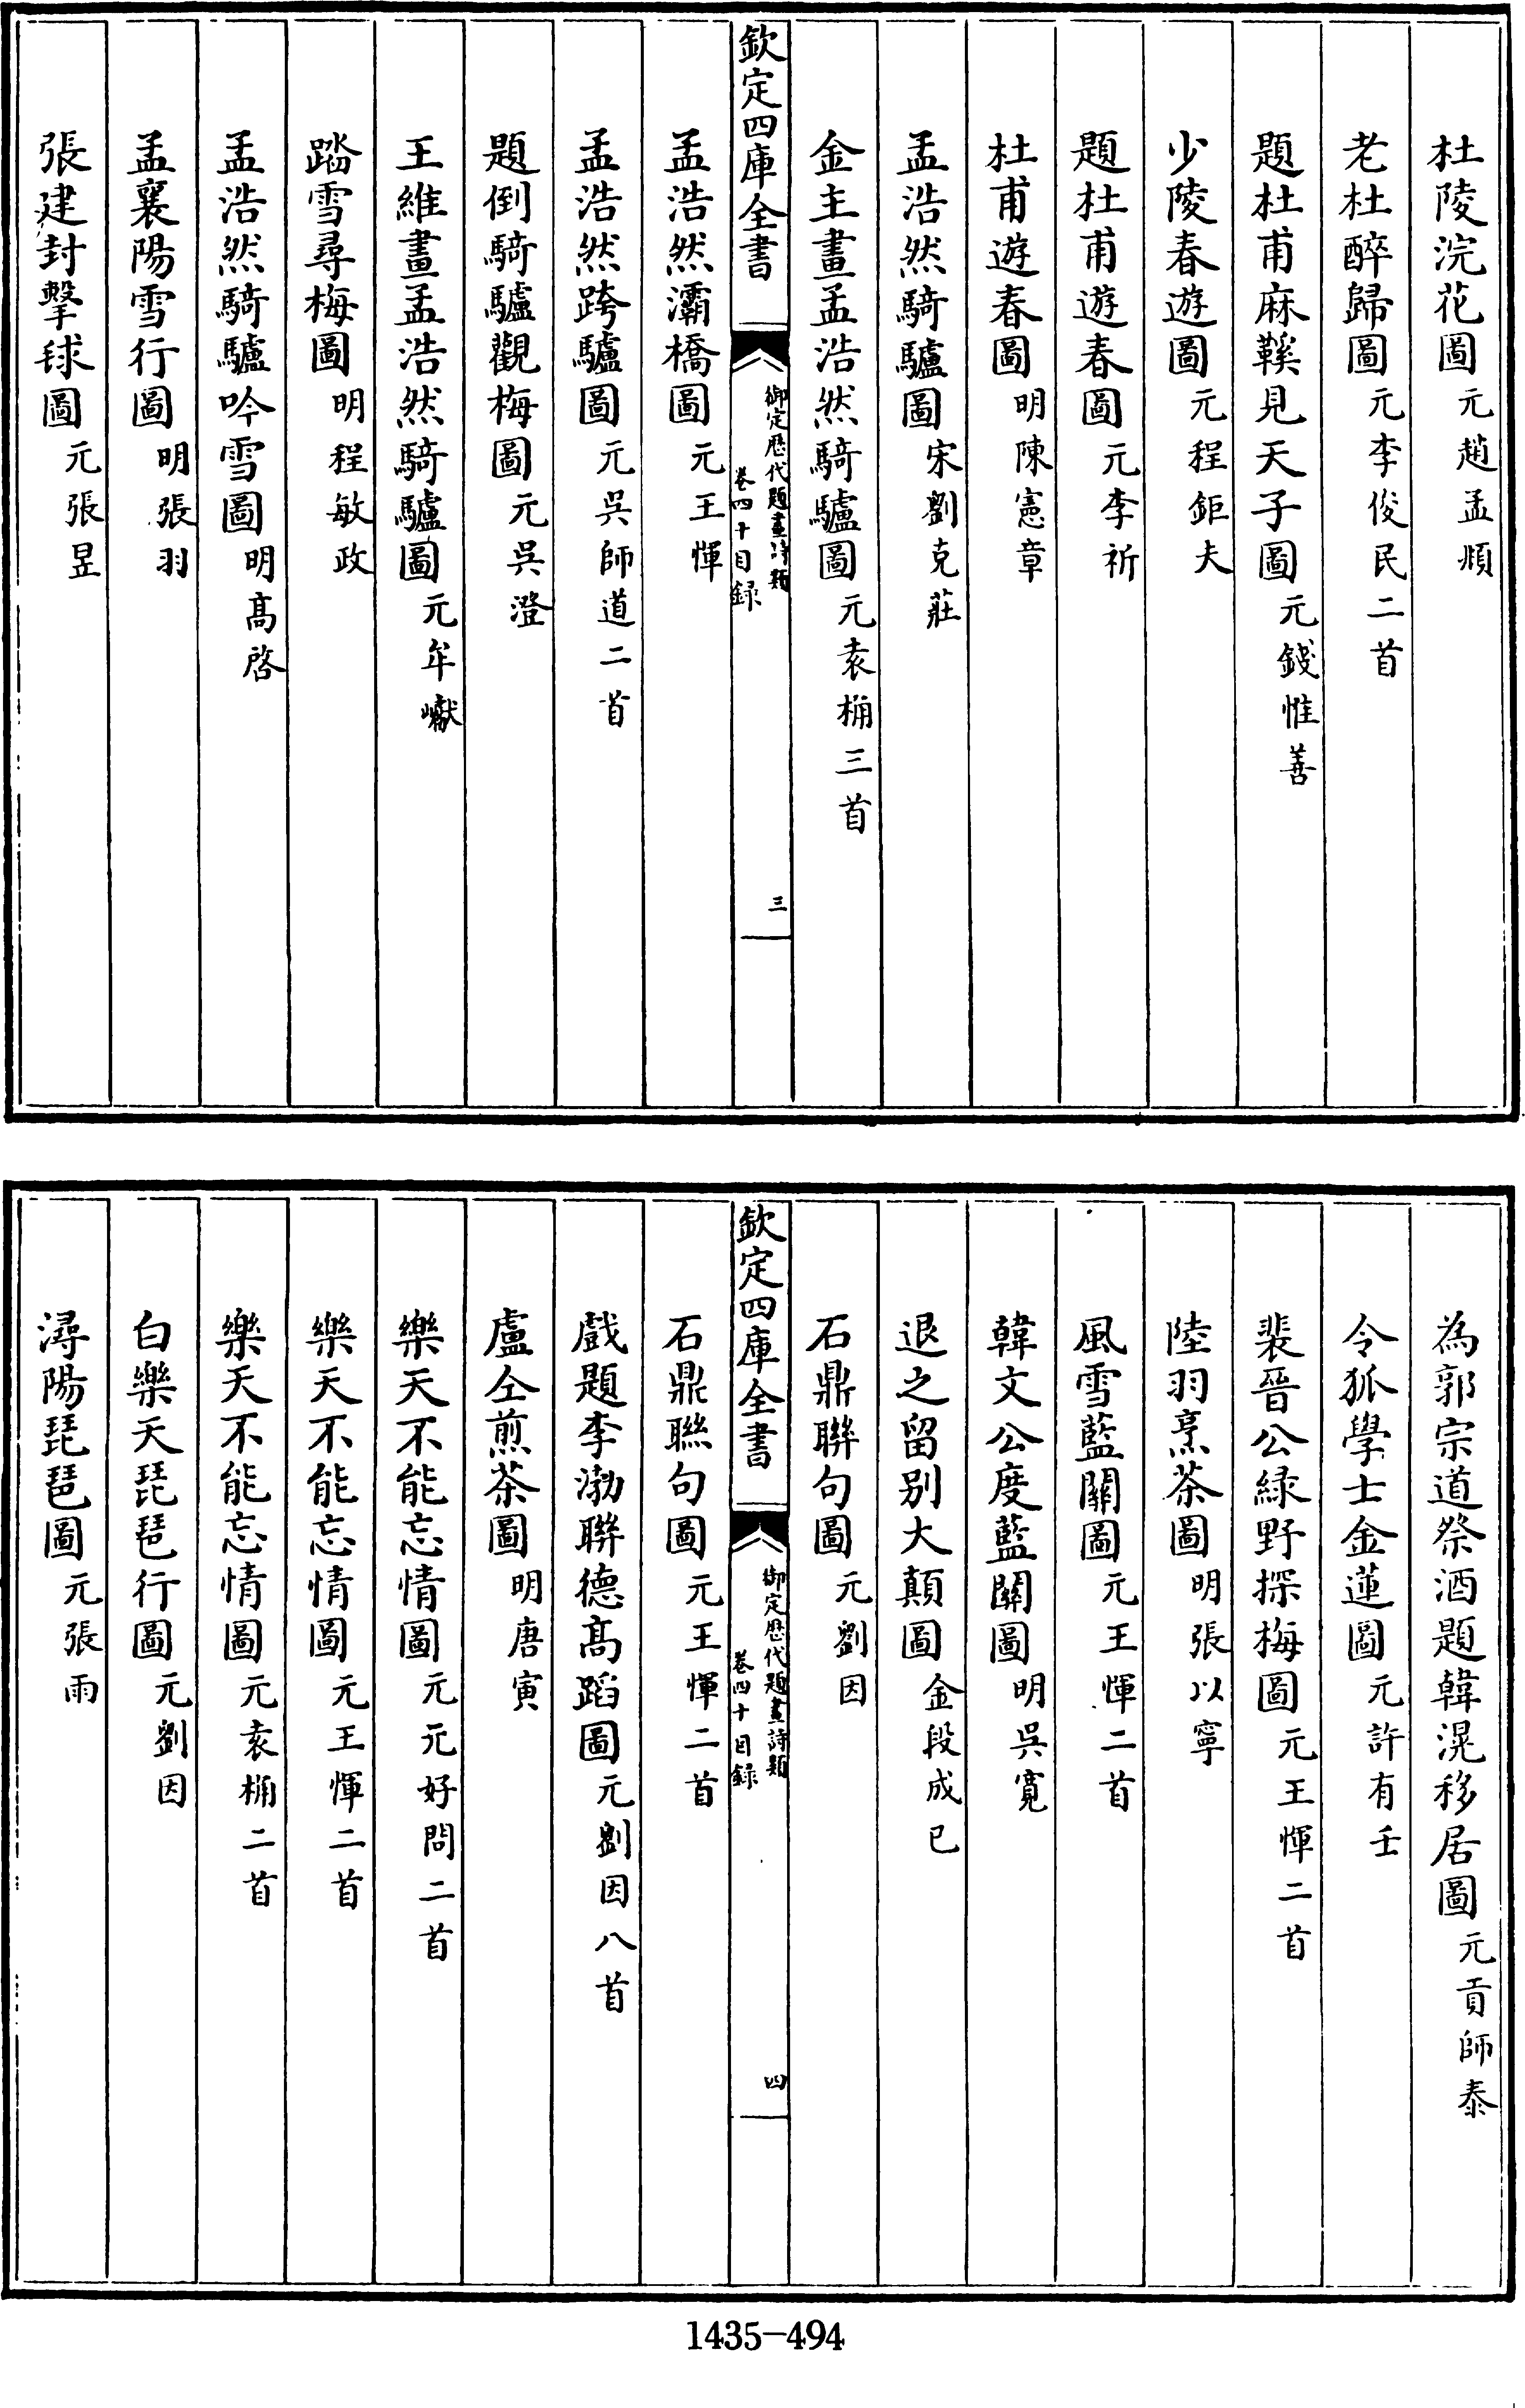 杜陵浣花圖元趙孟頫
老杜醉歸圖元李俊民二首
題杜甫麻鞵見天子圖元錢惟善
少陵春遊圖元程鉅夫
題杜甫遊春圖元李祈
杜甫遊春圖明陳憲章
孟浩然騎驢圖宋劉克莊
金主畫孟浩然騎驢圖元袁桷三首
欽定四庫全書
御定歴代題畫詩類
卷四十目録
三
孟浩然灞橋圖元王惲
孟浩然跨驢圖元吳師道二首
題倒騎驢觀梅圖元吳澄
王維畫孟浩然騎驢圖元牟巘
踏雪尋梅圖明程敏政
孟浩然騎驢吟雪圖明髙啓
孟襄陽雪行圖明張羽
張建封擊毬圖元張昱
為郭宗道祭酒題韓滉移居圖元貢師泰
令狐學士金蓮圖元許有壬
裴晉公緑野探梅圖元王惲二首
陸羽烹茶圖明張以寧
風雪藍關圖元王惲二首
韓文公度藍關圖明吳寛
退之留别大顛圖金段成已
石鼎聯句圖元劉因
欽定四庫全書
御定歴代題畫詩類
卷四十目録
四
石鼎聮句圖元王惲二首
戲題李渤聯德髙蹈圖元劉因八首
盧仝煎茶圖明唐寅
樂天不能忘情圖元元好問二首
樂天不能忘情圖元王惲二首
樂天不能忘情圖元袁桷二首
白樂天琵琶行圖元劉因
潯陽琵琶圖元張雨
1435-494